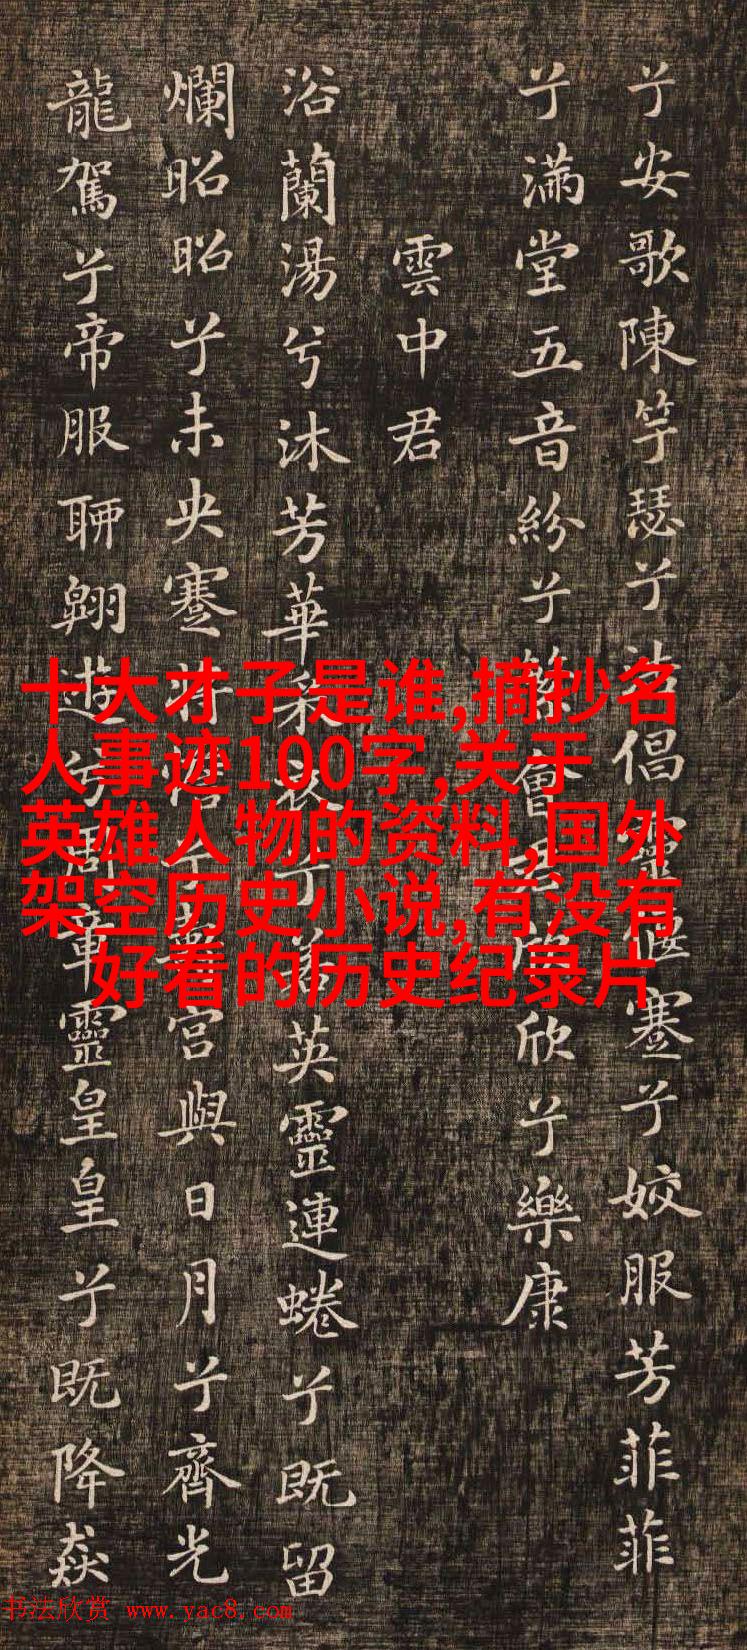 兮安歌陳竽瑟兮浩倡靈偃蹇兮姣服芳菲菲
兮滿堂五音紛兮繁會君欣欣兮樂康
雲中君
浴蘭湯兮沐芳華采衣兮若英靈連蜷兮既留
爛昭昭兮未央蹇將憺兮壽宮與日月兮齊光
龍駕兮帝服聊翱遊兮周章靈皇皇兮既降猋
十大才子是谁,摘抄名
人事迹100字,关于
英雄人物的资料,国外
架空历史小说,有没有
好看的历史纪录片
书法欣赏 www.yac8.com